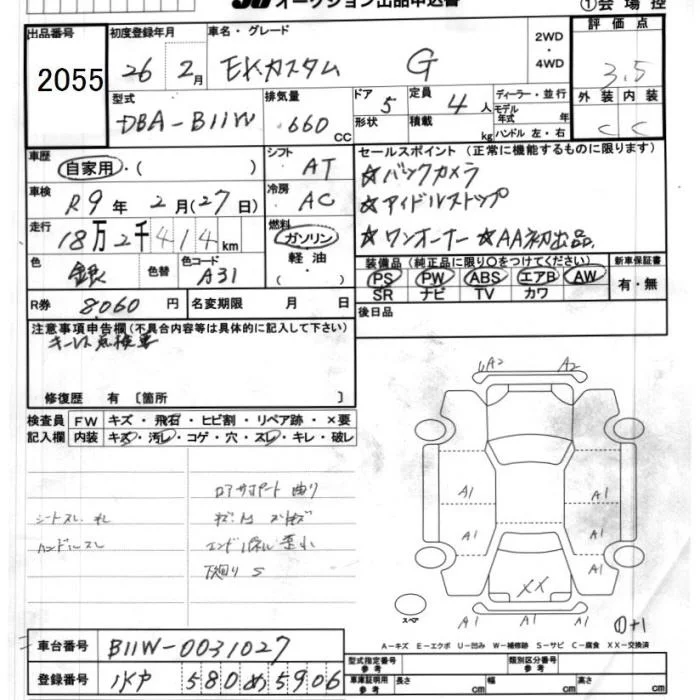 オークション出品申込書
①会場控
出品番号
2055
初度登録年月
26 2月
車名・グレード
EKカスタム G
2WD
・
4WD
評価点
3.5
型式
DBA-B11W
排気量
660 CC
ドア 5
形状
定員 4 人
積載 kg
ディーラー・並行
モデル年式 年
ハンドル 左・右
外装 内装
C C
車歴
自家用・( )
シフト AT
車検
R9年 2月(27日)
冷房 AC
走行
18万2千414km
燃料
ガソリン
軽油
・( )
色 銀 色替
色コード A31
R券 8,060円
名変期限 月 日
セールスポイント (正常に機能するものに限ります)
☆バックカメラ
☆アイドルストップ
☆ワンオーナー ☆AA初出品
装備品(純正品に限り○をつけてください)
PS PW ABS エアB AW
SR ナビ TV カワ
新車保証書
有・無
後日品
注意事項申告欄(不具合内容等は具体的に記入して下さい)
キーレス点検要
修復歴 有 〔箇所 〕
検査員記入欄
FW キズ・飛石・ヒビ割・リペア跡・×要
内装 キズ・汚レ・コゲ・穴・スレ・キレ・破レ
シートスレ
ハンドルスレ
曲り
下廻り S
A2 A2
A1 A1
A1 A1
A1 A1
XX
A1 A1
スペア
A-キズ E-エクボ U-凹み W-補修跡 S-サビ C-腐食 XX-交換済
車台番号 B11W-0031027
登録番号 580 め 5906
型式指定番号 参考
類別区分番号 参考
車庫証明用 参考
長さ cm
幅 cm
高さ cm